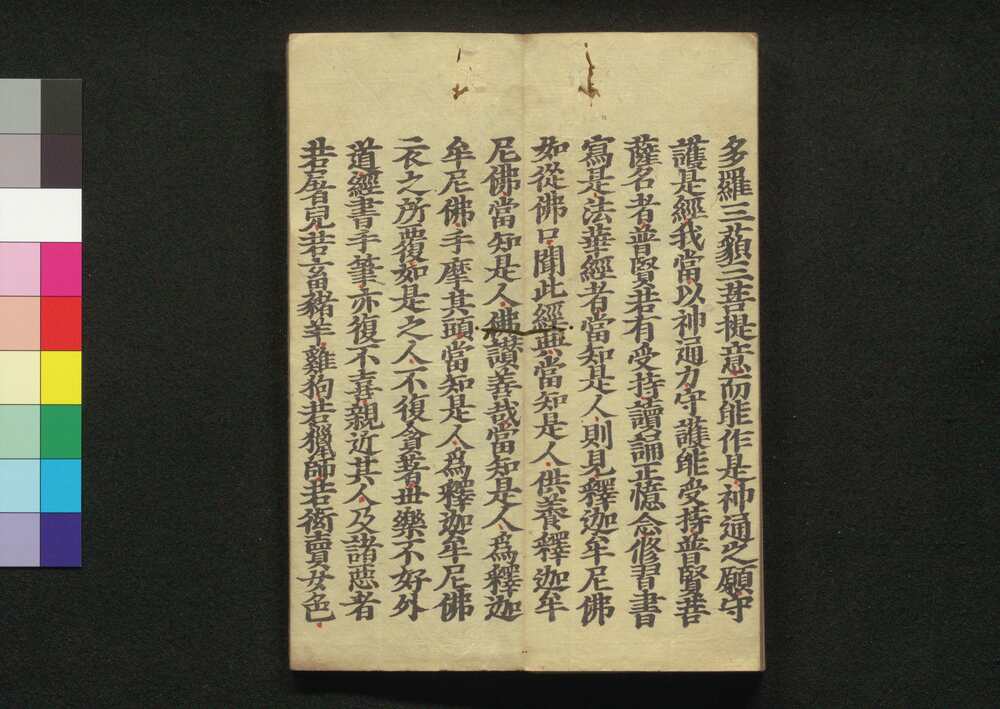 多羅三藐三菩提意而能作是神通之願守
護是經我當以神通力守護能受持普賢菩
薩名者普賢若有受持讀誦正憶念修習書
寫是法華經者當知是人則見釋迦牟尼佛
如從佛口聞此經典當知是人供養釋迦牟
尼佛當知是人佛讃善哉當知是人爲釋迦
牟尼佛手摩其頭當知是人爲釋迦牟尼佛
衣之所覆如是之人不復貪著世樂不好外
道經書手筆亦復不喜親近其人及諸惡者
若屠兒若畜猪羊雞狗若獵師若衒賣女色